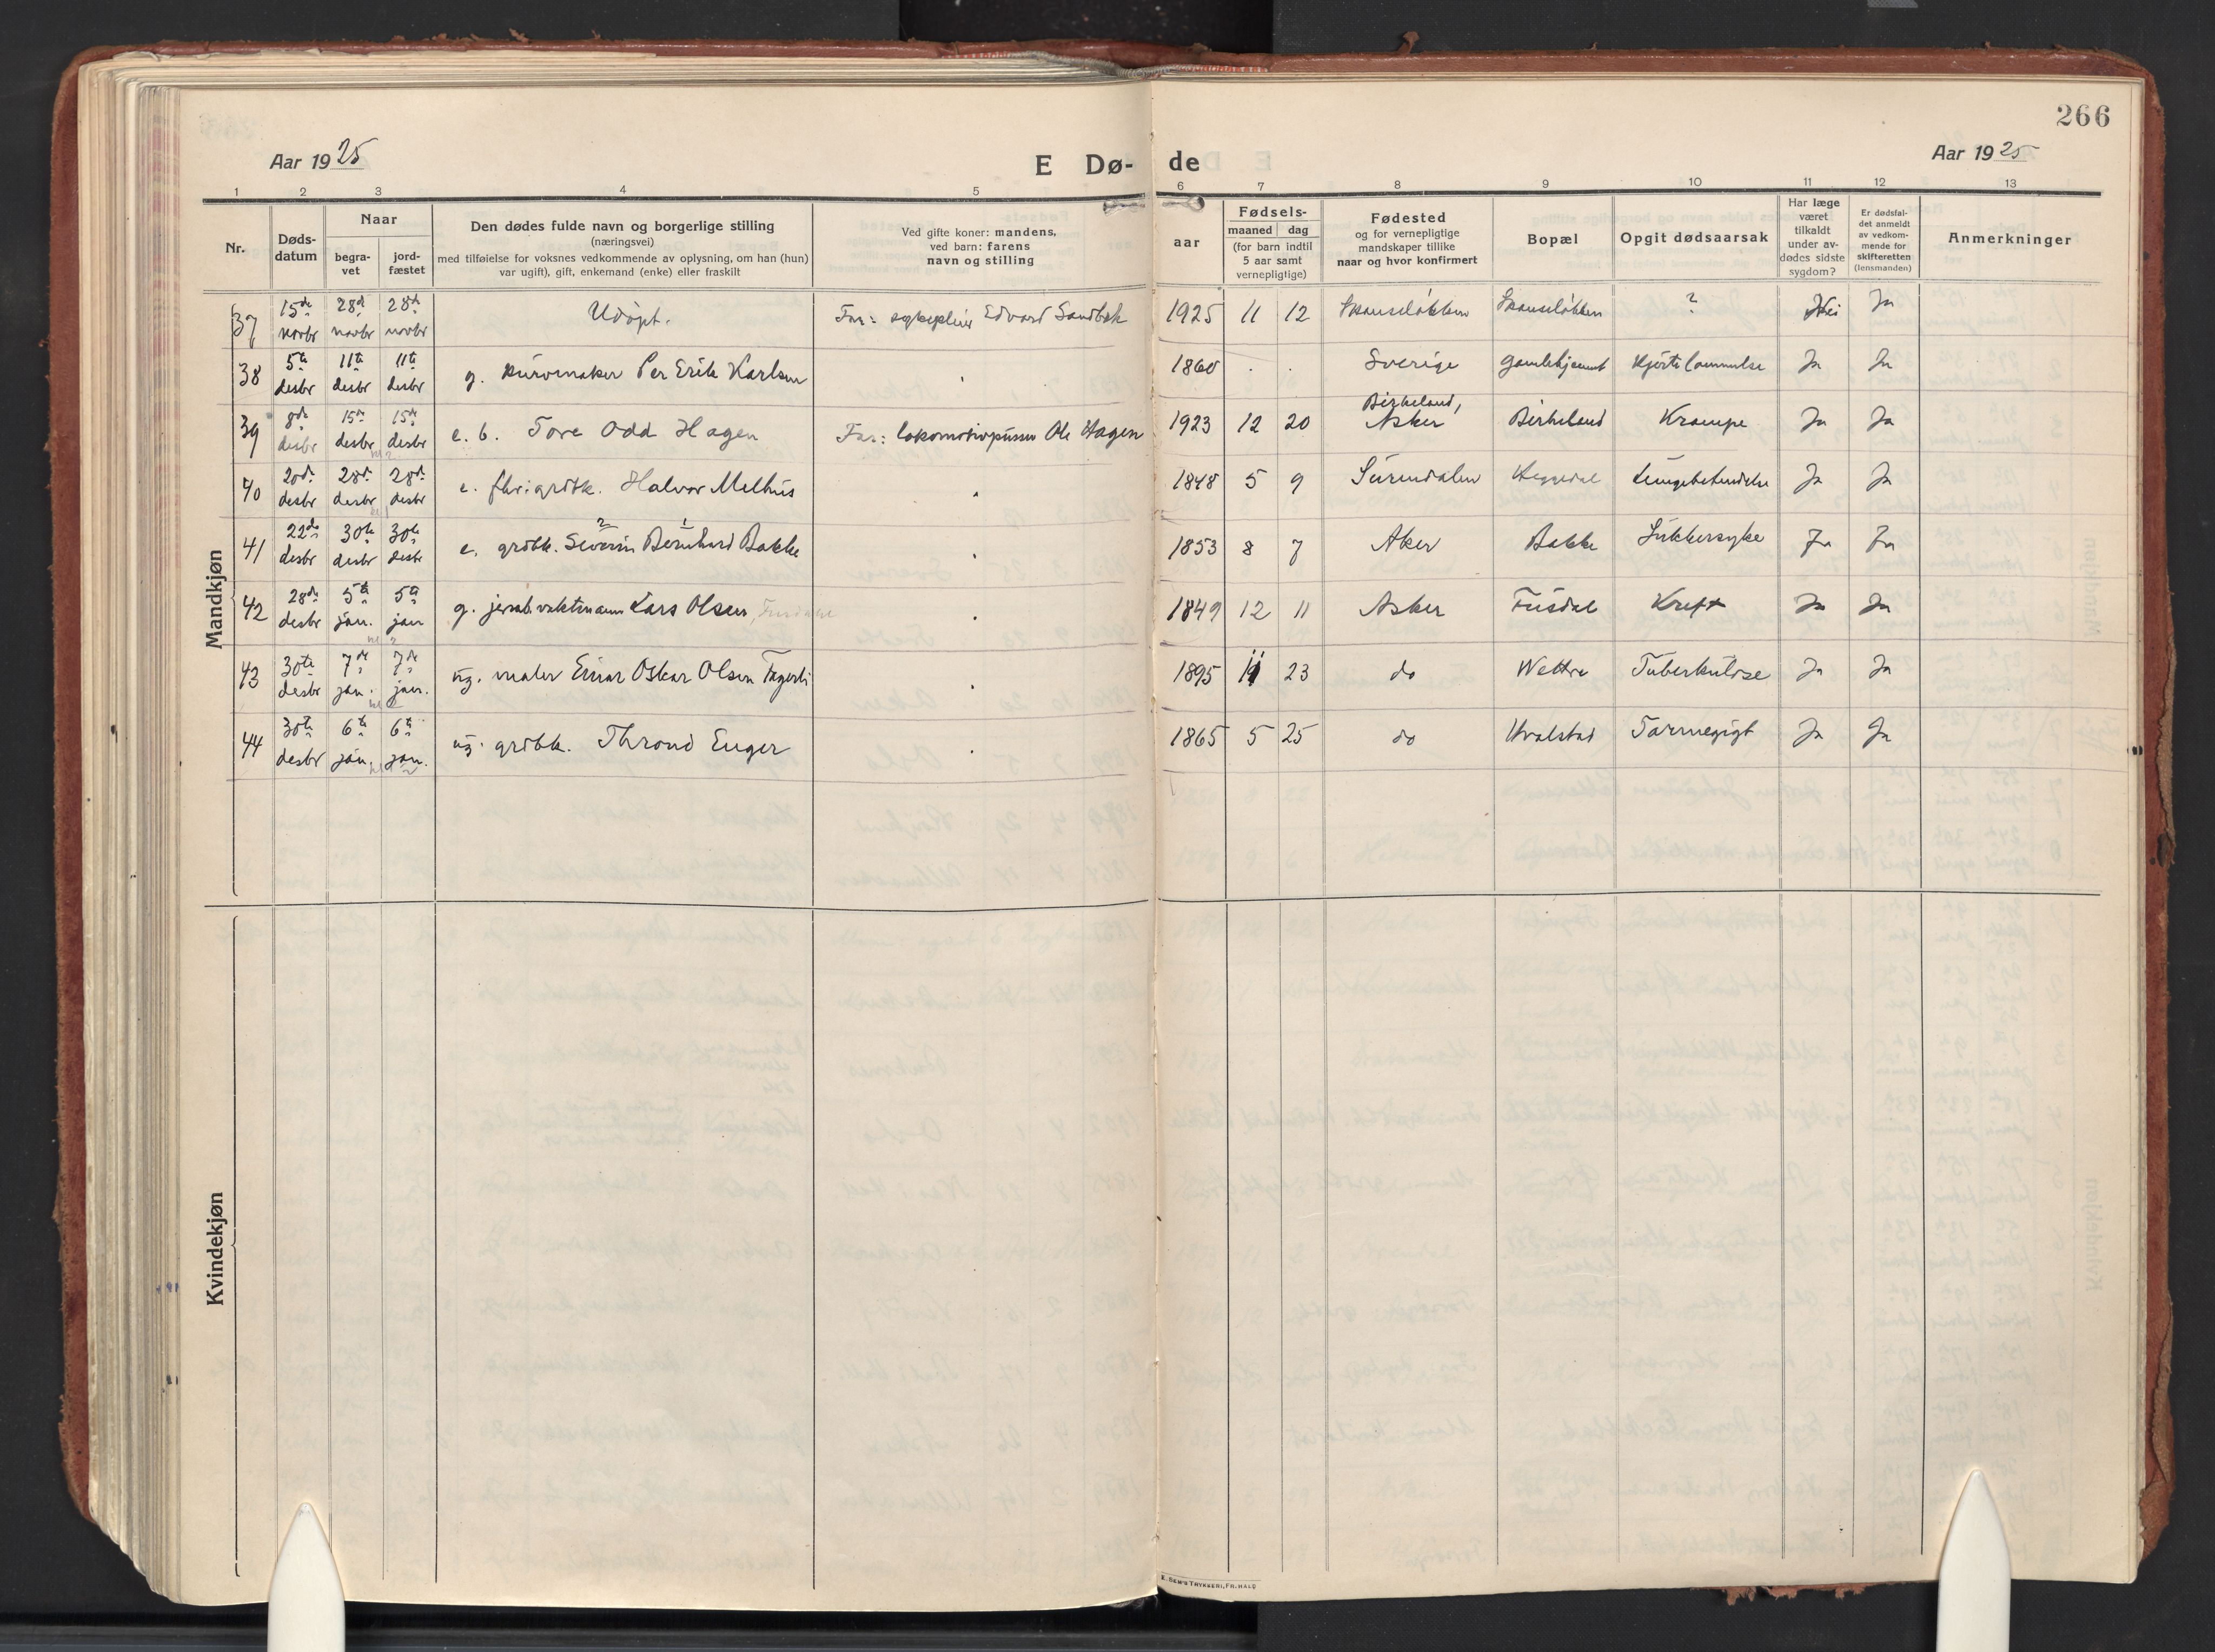 266
Aar 1925
E Dø- de
Aar 1925
1 2 3 4 5 6 7 8 9 10 11 12 13
Nr.
Døds-
datum
Naar
begra-
vet
jord-
fæstet
Den dødes fulde navn og borgerlige stilling
(næringsvei)
med tilføielse for voksnes vedkommende av oplysning, om han (hun)
var ugift), gift, enkemand (enke) eller fraskilt
Ved gifte koner: mandens,
ved barn: farens
navn og stilling
aar
Fødsels-
maaned dag
(for barn indtil
5 aar samt
vernepligtige)
Fødested
og for vernepligtige
mandskaper tillike
naar og hvor konfirmert
Bopæl
Opgit dødsaarsak
Har læge
været
tilkaldt
under av-
dødes sidste
sygdom?
Er dødsfal-
det anmeldt
av vedkom-
mende for
skifteretten
(lensmanden)
Anmerkninger
Mandkjøn
37 15de novbr 28de novbr 28de novbr Udøpt. Far: Edvard Sandbæk 1925 11 12 ? Nei Ja
38 5te desbr 11te desbr 11te desbr g. kurvmaker Per Erik Karlsen 1860 Sverige Gamlehjemmet Ja Ja
39 8de desbr 15de desbr 15de desbr e. b. Tore Odd Hagen Far: lokomotivpusser Ole Hagen 1923 12 20 Birkeland, Asker Birkeland Krampe Ja Ja
40 20de desbr 28de desbr 28de desbr e. fhv. grdbk. Halvor Melhus 1848 5 9 Surendalen Heggedal Lungebetendelse Ja Ja
41 22de desbr 30te desbr 30te desbr e. grdbk. Severin 2 Bernhard 1 Bakke 1853 8 7 Aker Bakke Sukkersyke Ja Ja
42 28de desbr 5te jan. 5te jan g. jernb.vaktmann Lars Olsen, Fusdal 1849 12 11 Asker Fusdal Kreft Ja Ja
43 30te desbr 7de jan. 7de jan. ug. maler Einar Oskar Olsen Fagerli 1895 11 23 do Wettre Tuberkulose Ja Ja
44 30te desbr 6te jan. 6te jan. ug. grdbk. Thrond Enger 1865 5 25 do Hvalstad Tarmegigt Ja Ja
Kvindekjøn